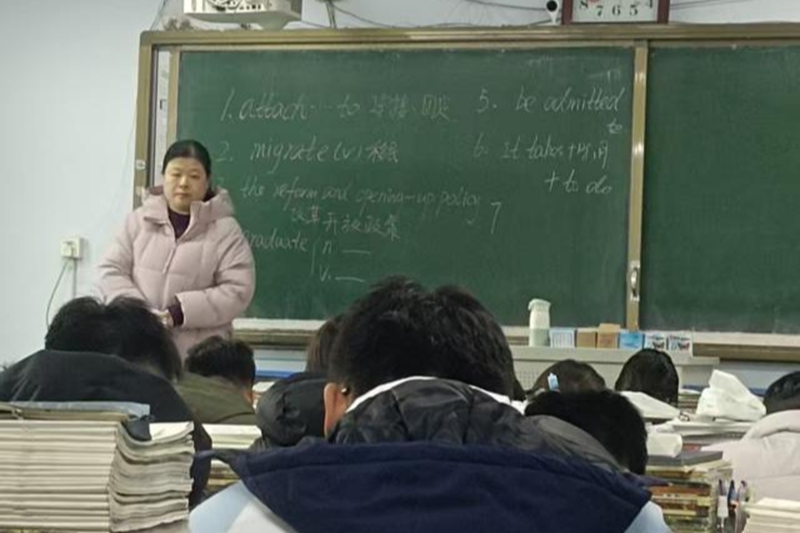 1. attach ... to 连接、固定
2. migrate (v) 移民
the reform and opening-up policy
改革开放政策
graduate { n. __
v. __
5. be admitted
to
6. It takes + 时间
+ to do
7
8 7 6 5 4